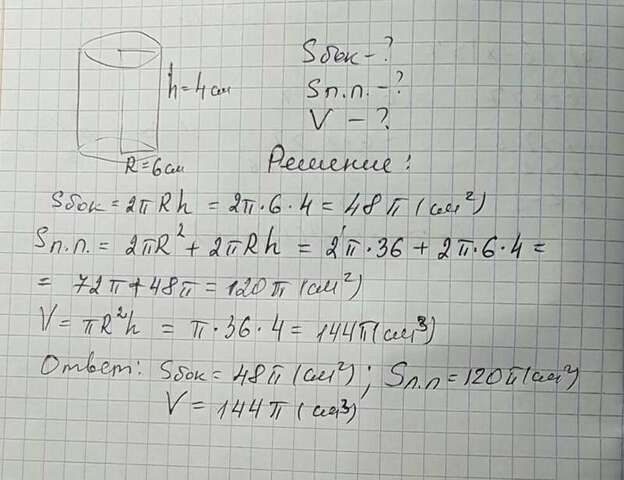 h = 4 см
R = 6 см
Sбок - ?
Sп.п. - ?
V - ?
Решение:
Sбок = 2πRh = 2π·6·4 = 48π (см²)
Sп.п. = 2πR² + 2πRh = 2π·36 + 2π·6·4 =
= 72π + 48π = 120π (см²)
V = πR²h = π·36·4 = 144π (см³)
Ответ: Sбок = 48π (см²); Sп.п = 120π (см²)
V = 144π (см³)